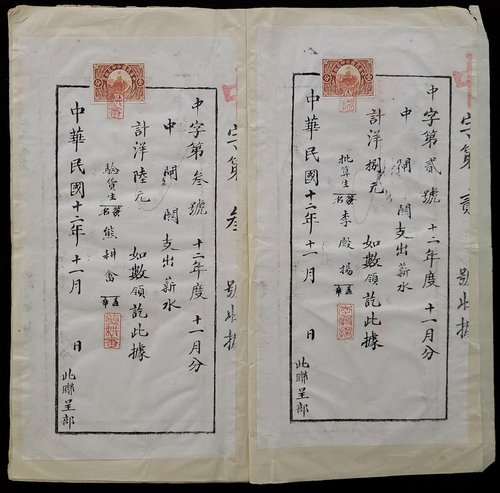 字第貳
號此據
中字第貳號 十二年度 十一月分
中 關 關支出薪水
計洋捌元 如數領訖此據
批算生 李殿揚
中華民國十二年十一月 日
此聯呈部
字第叁
號此據
中字第叁號 十二年度 十一月分
中 關 關支出薪水
計洋陸元 如數領訖此據
驗貨生 熊耕畬
中華民國十二年十一月 日
此聯呈部